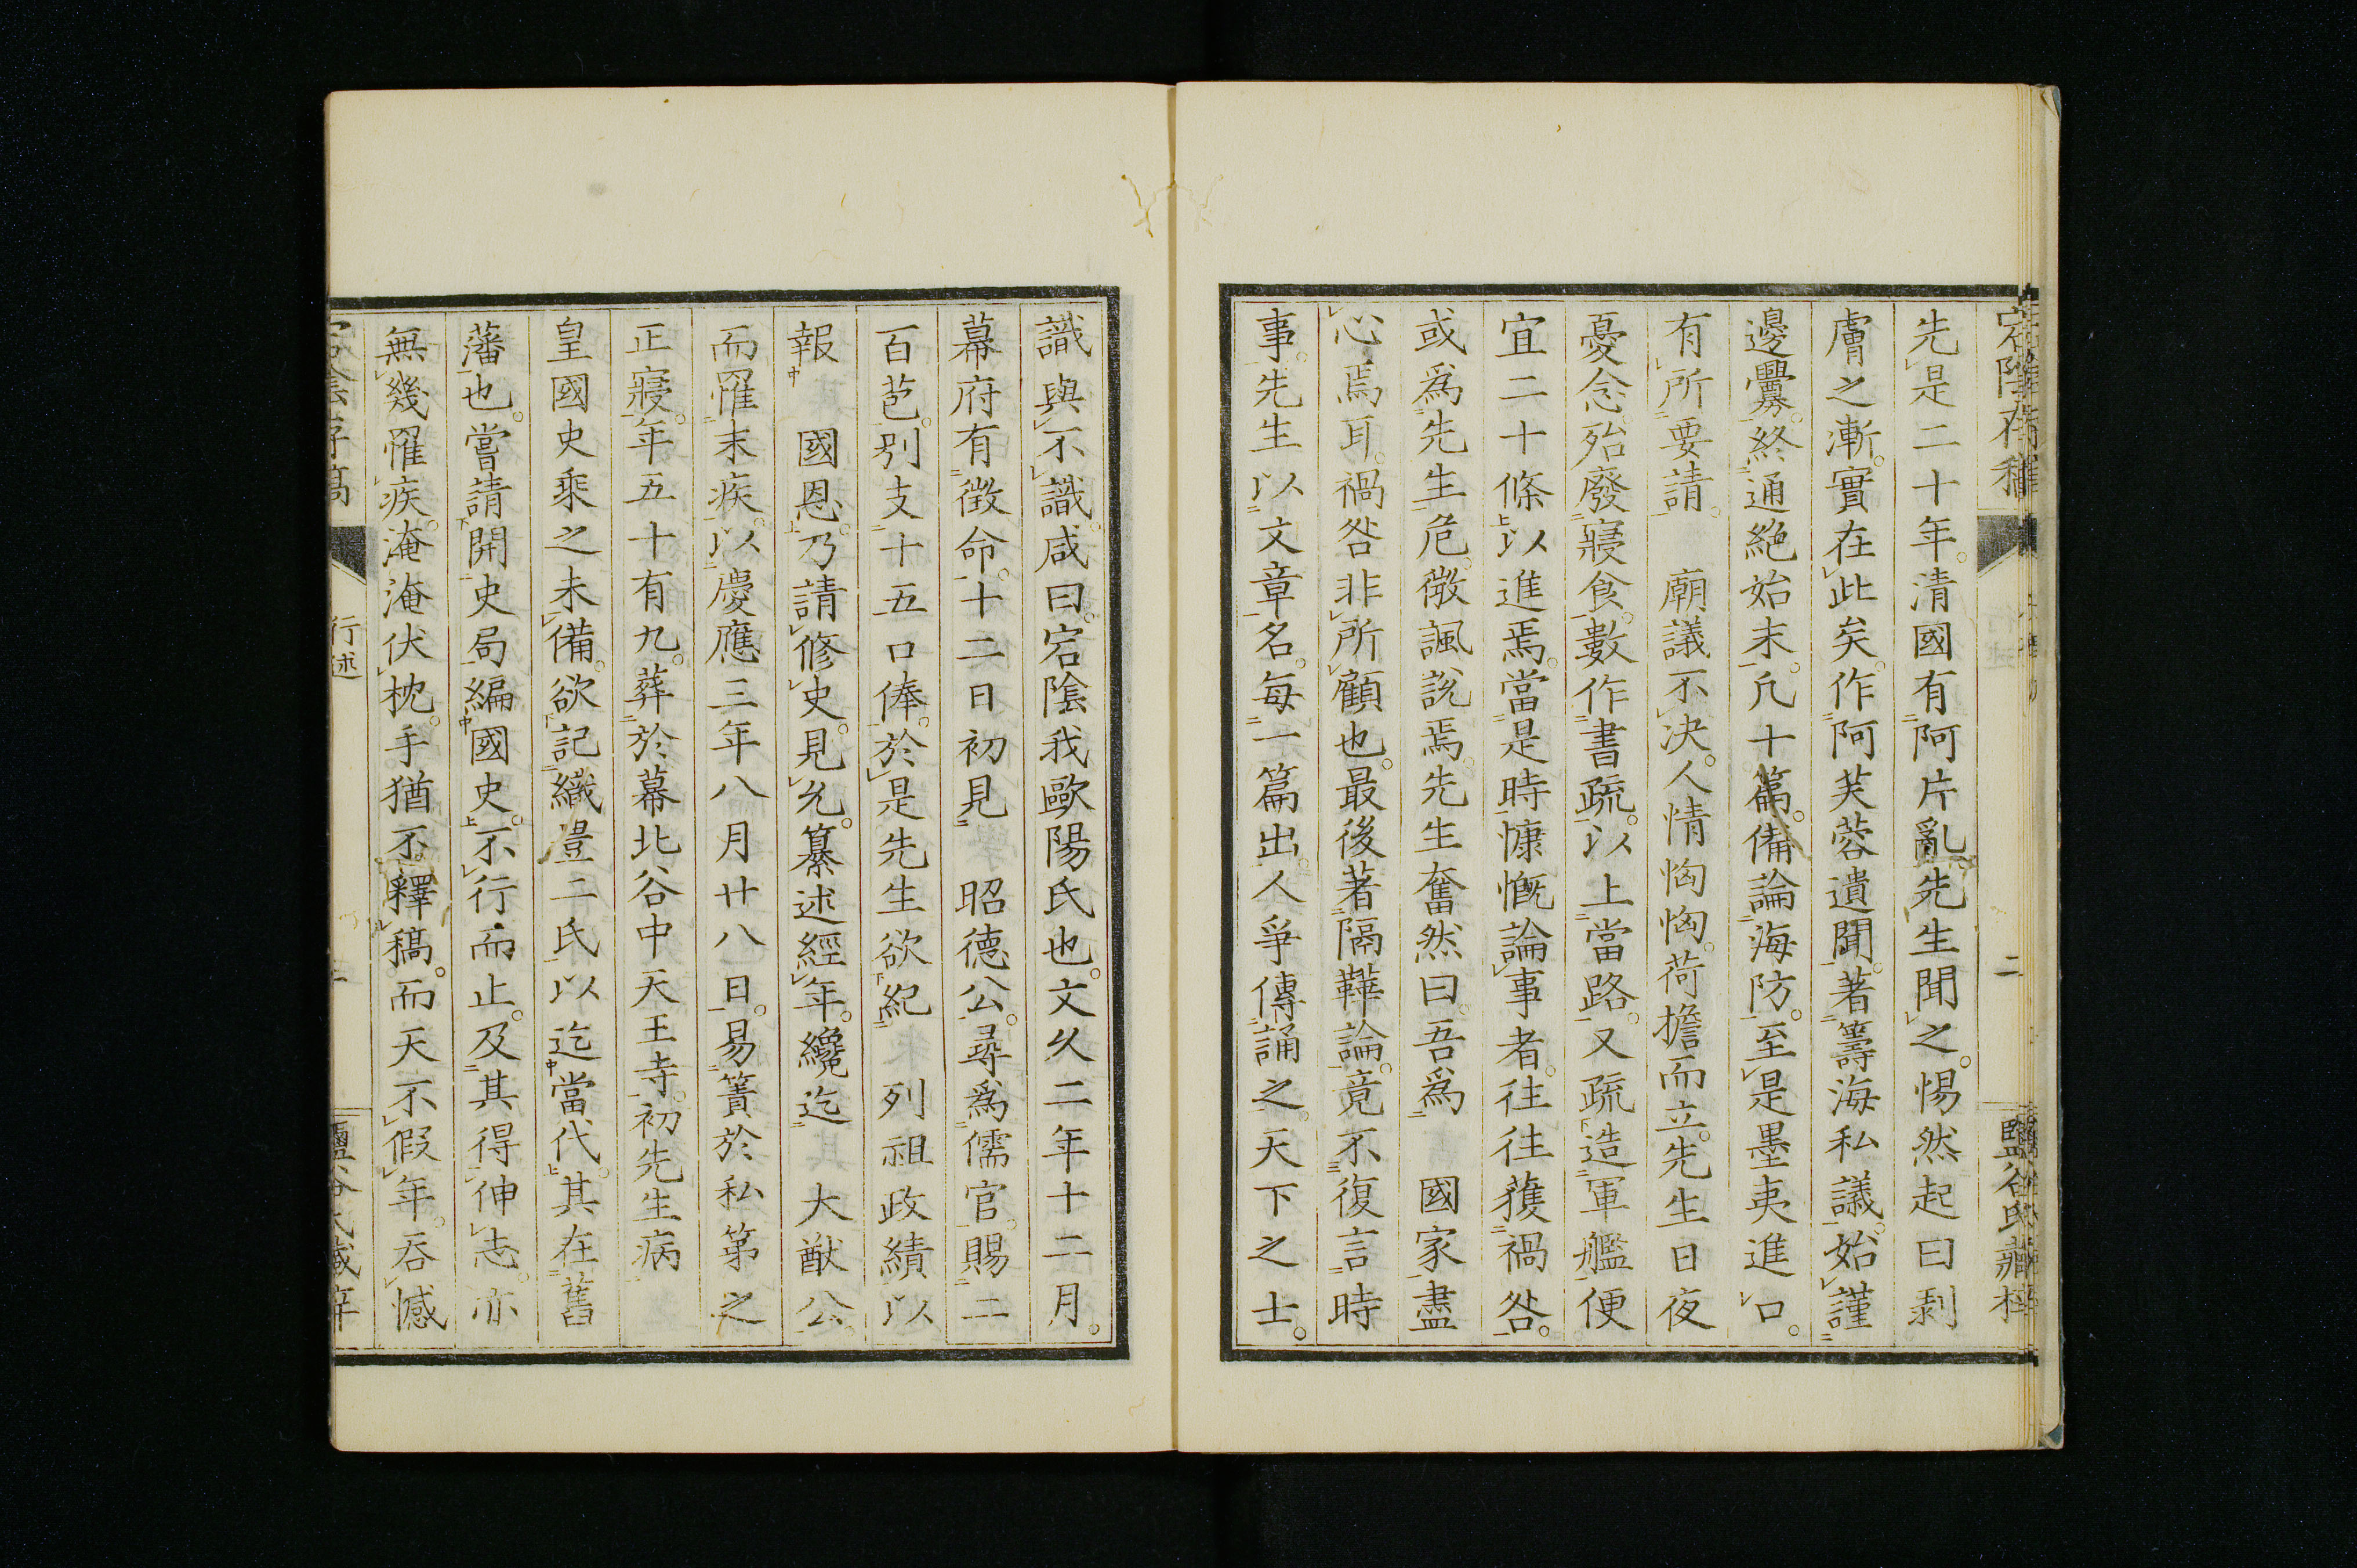 先是二十年。清國有阿片亂。先生聞之。惕然起曰剥
膚之漸。實在此矣。作阿芙蓉遺聞。著籌海私議。始謹
邊釁。終通絕始末。凡十篇。備論海防。至是墨夷進口。
有所要請。 廟議不決。人情恟恟。荷擔而立。先生日夜
憂念殆廢寢食。數作書疏。以上當路。又疏造軍艦便
宜二十條以進焉。當是時慷慨論事者。往往獲禍咎。
或爲先生危。徴諷說焉。先生奮然曰。吾爲 國家盡
心焉耳。禍咎非所顧也。最後著隔鞾論。竟不復言時
事。先生以文章名。每一篇出。人爭傳誦之。天下之士。
識與不識。咸曰。宕陰我歐陽氏也。文久二年十二月。
幕府有徴命。十二日初見 昭德公。尋爲儒官。賜二
百苞。別支十五口俸。於是先生欲紀 列祖政績以
報 國恩。乃請修史。見允。纂述經年。纔迄 大猷公。
而罹末疾。以慶應三年八月廿八日。易簀於私第之
正寢。年五十有九。葬於幕北谷中天王寺。初先生病
皇國史乘之未備。欲記織豊二氏以迄當代。其在舊
藩也。嘗請開史局編國史。不行而止。及其得伸志。亦
無幾罹疾。淹淹伏枕。手猶不釋稿。而天不假年。吞憾
行述
二